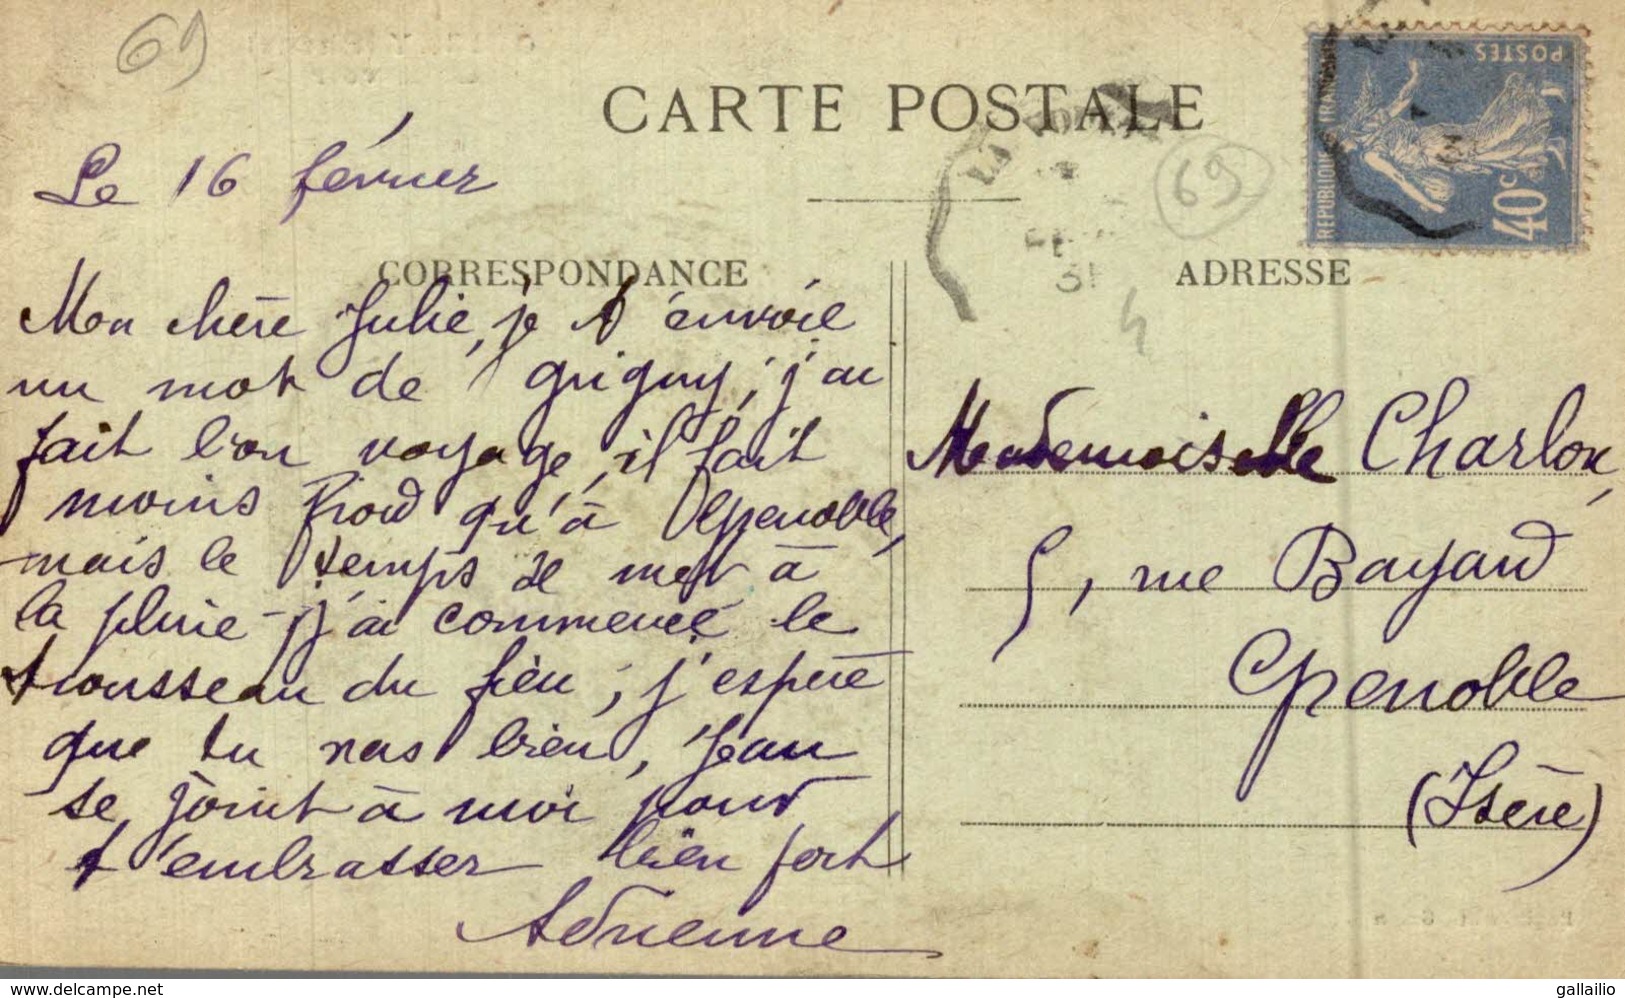 69
CARTE POSTALE
POSTES
REPUBLIQUE FRANCAISE
40c
Le 16 février
69
31
CORRESPONDANCE
ADRESSE
Mon chère Julie, je t'envoie
un mot de Grigny, j'ai
fait bon voyage, il fait
moins froid qu'à Grenoble,
mais le temps se met à
la pluie - j'ai commencé le
trousseau du fieu, j'espère
que tu vas bien, Jean
se joint à moi pour
t'embrasser bien fort
Adrienne
Mademoiselle Charlon,
5, rue Bayard
Grenoble
(Isère)
www.delcampe.net
gallailio